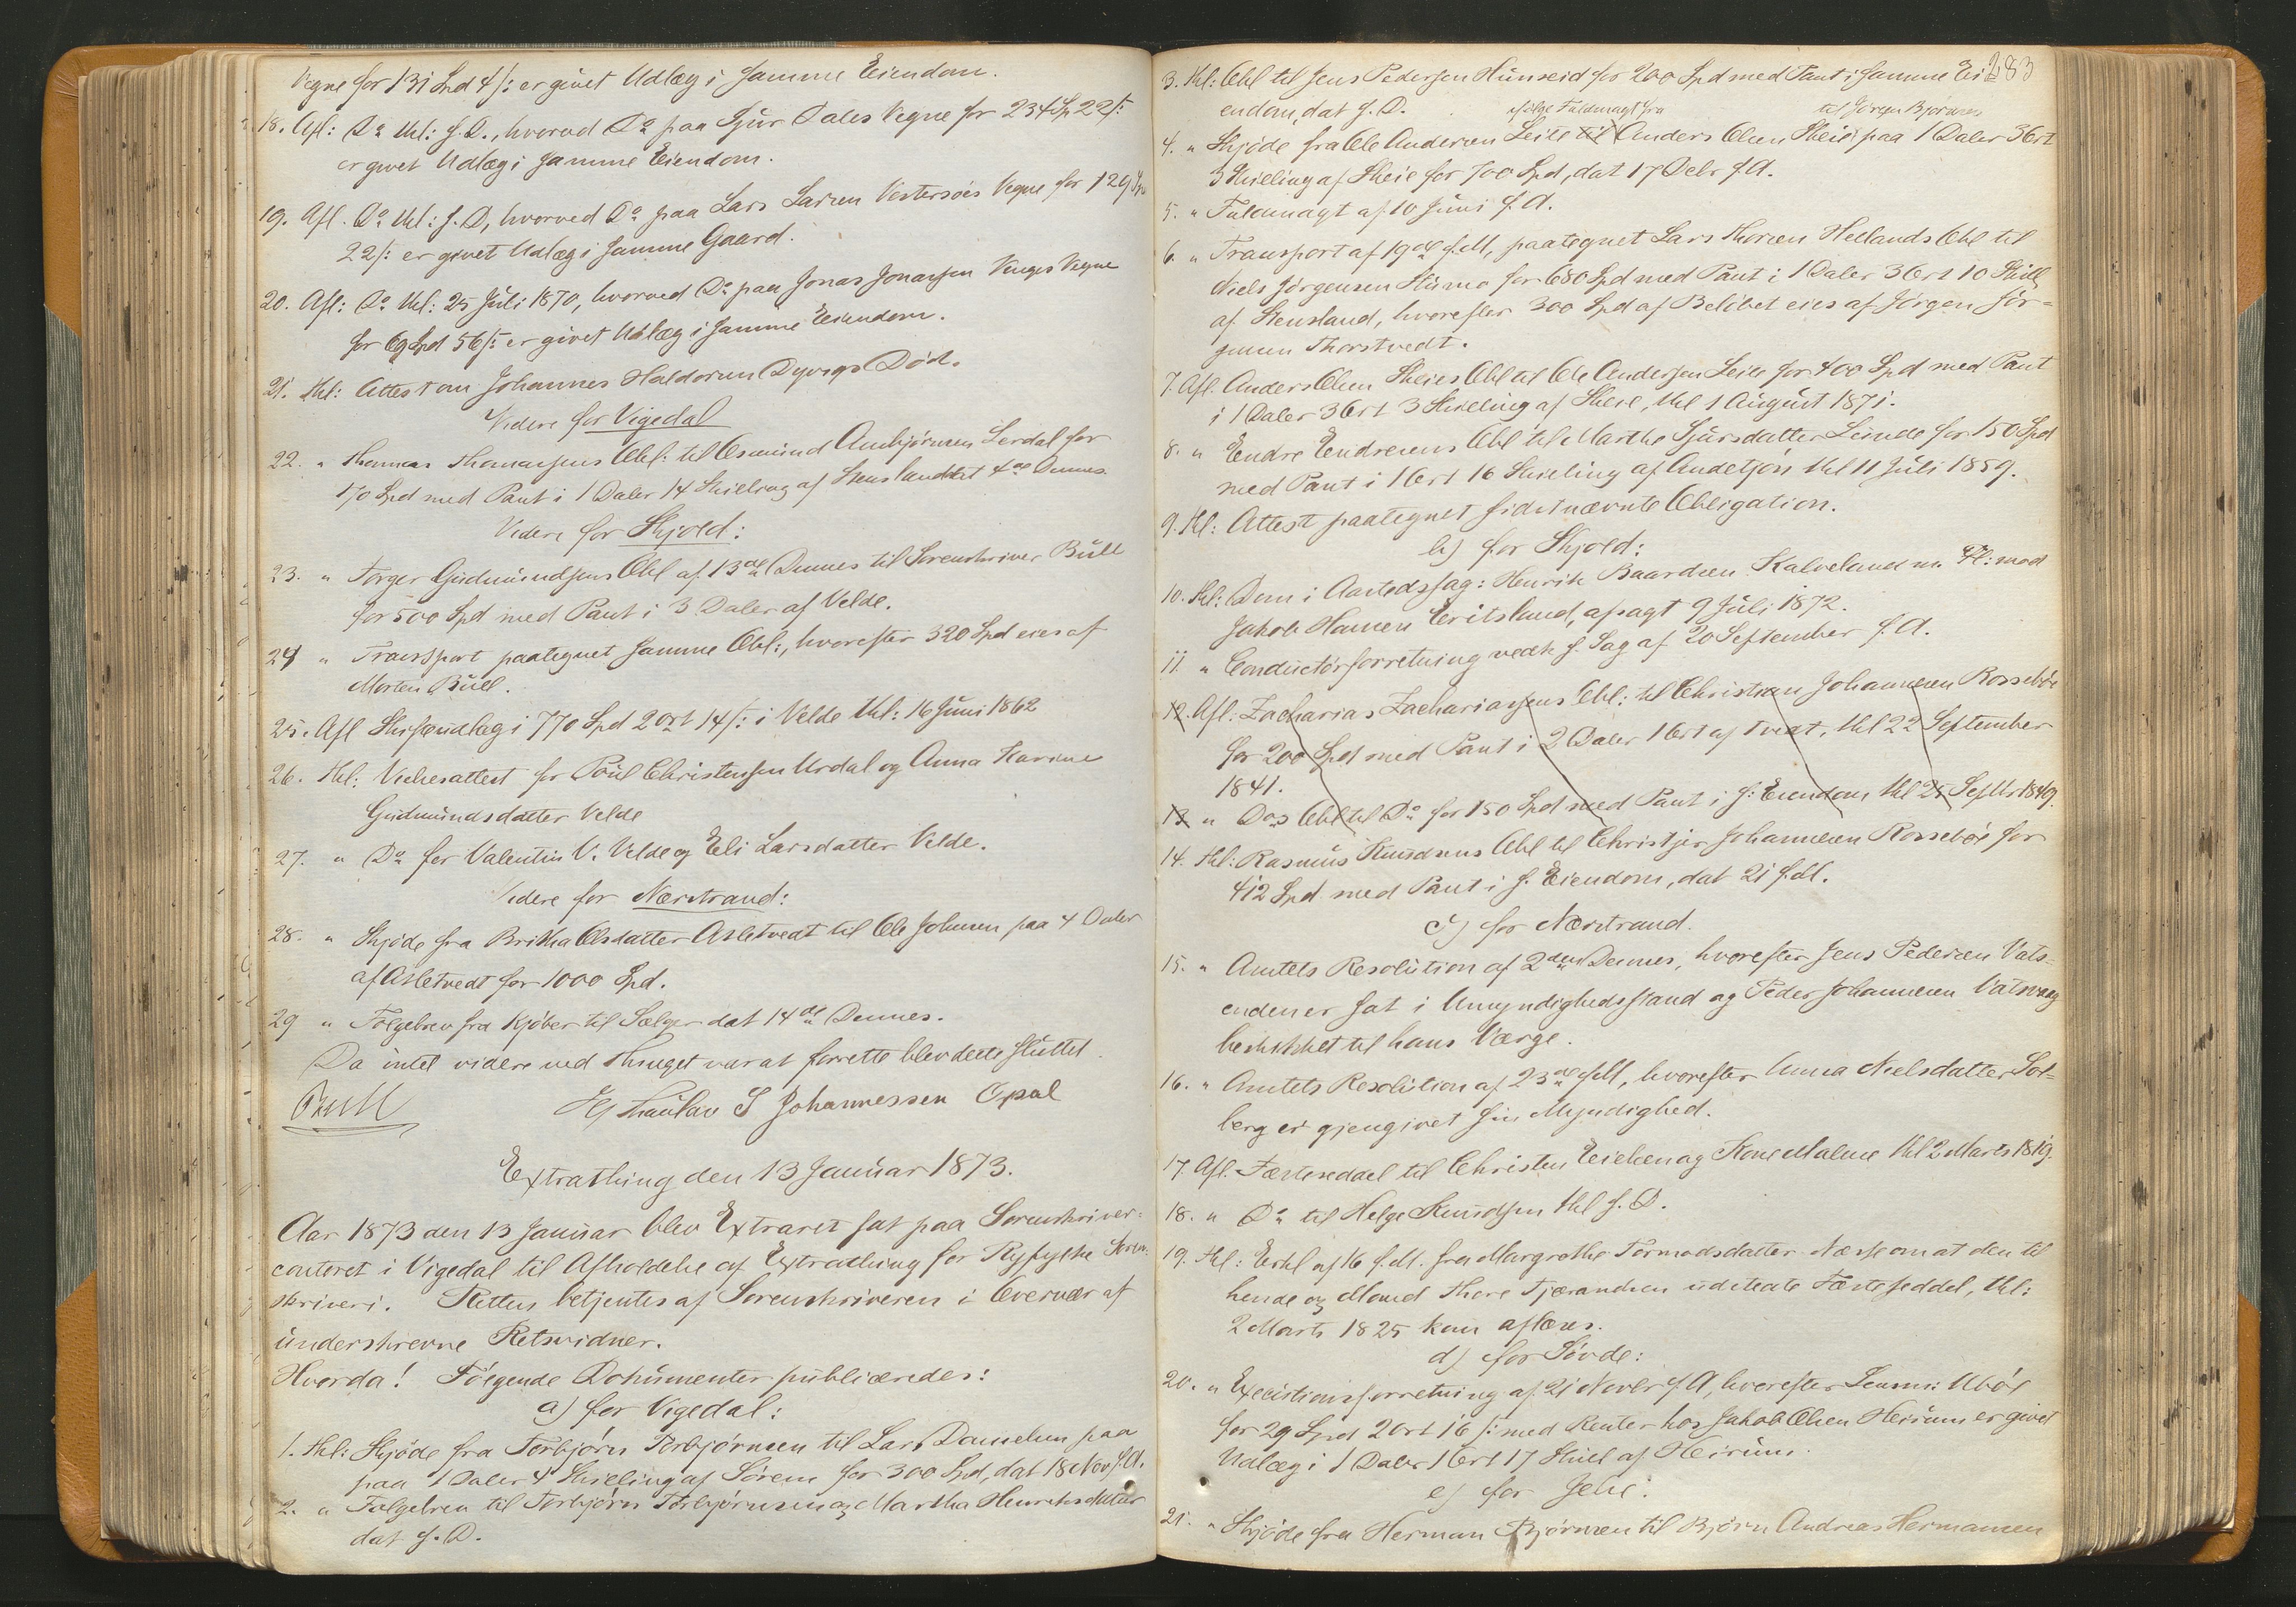 Vegne for 131 Spd 4 /: er givet Udlæg i samme Eiendom.
18. Afl: Do thl: s. D., hvorved Do paa Sjur Dales Vegne for 234 Sp 22 /:
er givet Udlæg i samme Eiendom.
19. Afl. Do thl: s. D, hvorved Do paa Lars Larsen Vestersøes Vegne for 129 Sp
22 /: er givet Udlæg i samme Gaard.
20. Afl: Do thl: 25 Juli 1870, hvorved Do paa Jonas Jonassen Venges Vegne
for 69 Spd 56 /: er givet Udlæg i samme Eiendom.
21. thl: Attest om Johannes Haldorsen Dyrigs Død.
Videre for Vigedal
22. " Thomas Thomassens Obl: til Osmund Ambjørnsen Lerdal for
170 Spd med Pant i 1 Daler 14 Skilling af Stensland dat 4de Dennes
Videre for Skjold:
23. " Torger Gudmundsens Obl af 13de Dennes til Sorenskriver Bull
for 500 Spd med Pant i 3 Daler af Velde.
24 " Transport paategnet samme Obl:, hvorefter 320 Spd eies af
Morten Bull.
25. Afl Skifteudlæg i 770 Spd 2 ort 14 /: i Velde thl: 16 Juni 1862
26. thl: Vielsesattest for Poul Christensen Urdal og Anna Karine
Gudmundsdatter Velde
27. " Do for Valentin V. Velde og Eli Larsdatter Velde.
Videre for Nærstrand:
28. " Skjøde fra Britha Olsdatter Asletvedt til Ole Johnsen paa 4 Daler
af Asletvedt for 1000 Spd.
29 " Følgebrev fra Kjøber til Sælger dat 14de Dennes.
Da intet videre ved Thinget var at forrette blev dette sluttet.
Bull S Johannessen Opsal
Extrathing den 13 Januar 1873.
Aar 1873 den 13 Januar blev Extraret sat paa Sorenskriver-
contoret i Vigedal til Afholdelse af Extrathing for Ryfylke Soren-
skriveri. Retten betjentes af Sorenskriveren i Overvær af
underskrevne Retsvidner.
Hvorda! Følgende Dokumenter publiceredes:
a) for Vigedal:
1. thl: Skjøde fra Torbjørn Torbjørnsen til Lars Danielsen paa
paa 1 Daler 4 Skilling af Sørem for 300 Spd, dat 18 Nov f. A.
2. " Følgebrev til Torbjørn Torbjørnsen og Martha Henriksdatter
dat s. D.
283
3. thl: Obl til Jens Pedersen Hunseid for 200 Spd med Pant i samme Ei-
endom, dat s. D.
ifølge Fuldmagt fra til Jørgen Bjørnsen
4. " Skjøde fra Ole Andersen Leile til Anders Olsen Skeie paa 1 Daler 3 Ort
3 Skilling af Skeie for 700 Spd, dat 17 Debr f. A.
5. " Fuldmagt af 10 Juni f. A.
6. " Transport af 19de f. M, paategnet Lars Thorsen Hellands Obl til
Niels Jørgensen Stumo for 680 Spd med Pant i 1 Daler 3 Ort 10 Skill
af Stensland, hvorefter 300 Spd af Beløbet eies af Jørgen Jør-
gensen Thorstvedt.
7. Afl. Anders Olsen Skeies Obl til Ole Andersen Leile for 400 Spd med Pant
i 1 Daler 3 Ort 3 Skilling af Skeie, thl 1 August 1871.
8. " Endre Endresens Obl til Marthe Sjursdatter Lunde for 150 Spd
med Pant i 1 Ort 16 Skilling af Andetjøn thl 11 Juli 1859.
9. thl: Attest paategnet sidstnævnte Obligation.
b) for Skjold:
10. thl: Dom i Aastedssag: Henrik Baardsen Kalveland m. Fl: mod
Jakob Hansen Eritsland, afsagt 9 Juli 1872.
11. " Conductørforretning vedk s. Sag af 20 September f. A.
12. Afl: Zacharias Zachariassens Obl: til Christian Johannesen Rossebøe
for 200 Spd med Pant i 2 Daler 1 Ort af Tveit, thl 22 September
1841.
13 " Dos Obl til Do for 150 Spd med Pant i s: Eiendom thl 25 Septbr 1849.
14. thl: Rasmus Knudsens Obl til Christjer Johannesen Rossebøe for
412 Spd med Pant i s. Eiendom, dat 21 f. M.
c) for Nærstrand.
15. " Amtets Resolution af 2den Dennes, hvorefter Jens Pedersen Vats-
enden er sat i Umyndighedsstand og Peder Johannesen Vatsvaag
beskikket til hans Værge.
16. " Amtets Resolution af 23de f. M, hvorefter Anna Nielsdatter Sol-
berg er gjengivet sin Myndighed.
17. Afl. Fæsteseddel til Christen Erichsen og Kone Malene thl 2 Marts 1819.
18. " Do til Helge Knudsen thl s. D.
19. thl: Erkl af 16 f. M. fra Margrethe Tormodsdatter Næs om at den til
hende og Mand Thore Tjerandsen udstedte Fæsteseddel, thl:
2 Marts 1825 kan aflæses.
d) for Søvde:
20. " Executionsforretning af 21 Novbr f A, hvorefter Ubøe
for 29 Spd 2 Ort 16 /: med Renter hos Jakob Olsen Herium er givet
Udlæg i 1 Daler 1 Ort 17 Skill af Herium.
e) for Jelse:
21. " Skjøde fra Herman Bjørnsen til Bjørn Andreas Hermansen